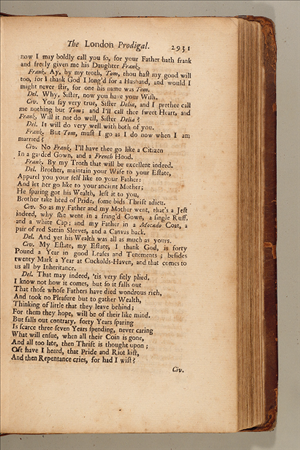 The London Prodigal. 2931
now I may boldly call you so, for your Father hath frank
and freely given me his Daughter Frank.
Frank. Ay, by my troth, Tom, thou hast my good will
too, for I thank God I long'd for a Husband, and would I
might never stir, for one his name was Tom.
Del. Why, Sister, now you have your Wish.
Civ. You say very true, Sister Delia, and I prethee call
me nothing but Tom; and I'll call thee sweet Heart, and
Frank, Will it not do well, Sister Delia?
Del. It will do very well with both of you.
Frank. But Tom, must I go as I do now when I am
married?
Civ. No Frank, I'll have thee go like a Citizen
In a garded Gown, and a French Hood.
Frank. By my Troth that will be excellent indeed.
Del. Brother, maintain your Wife to your Estate,
Apparel you your self like to your Father;
And let her go like to your ancient Mother;
He sparing got his Wealth, left it to you,
Brother take heed of Pride, some bids Thrift adieu.
Civ. So as my Father and my Mother went, that's a Jest
indeed, why she went in a fring'd Gown, a single Ruff,
and a white Cap; and my Father in a Mocado Coat, a
pair of red Sattin Sleeves, and a Canvas back.
Del. And yet his Wealth was all as much as yours.
Civ. My Estate, my Estate, I thank God, is forty
Pound a Year in good Leases and Tenements; besides
twenty Mark a Year at Cuckolds-Haven, and that comes to
us all by Inheritance.
Del. That may indeed, 'tis very fitly plied,
I know not how it comes, but so it falls out
That those whose Fathers have died wondrous rich,
And took no Pleasure but to gather Wealth,
Thinking of little that they leave behind;
For them they hope, will be of their like mind.
But falls out contrary, forty Years sparing
Is scarce three seven Years spending, never caring
What will ensue, when all their Coin is gone,
And all too late, then Thrift is thought upon;
Oft have I heard, that Pride and Riot kist,
And then Repentance cries, for had I wist?
Civ.